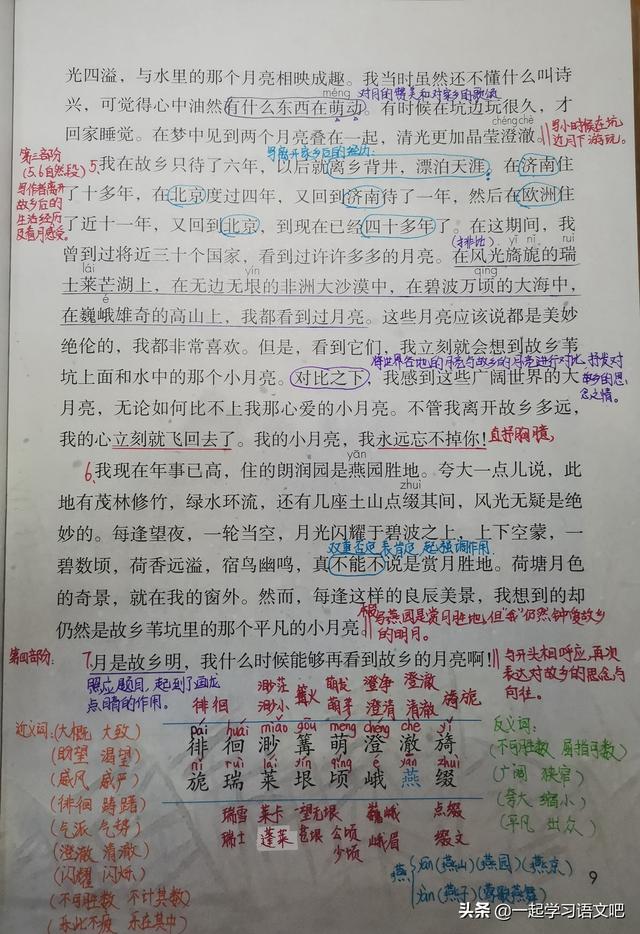 光四溢，与水里的那个月亮相映成趣。我当时虽然还不懂什么叫诗
méng
对月的赞美和对家乡的歌颂
兴，可觉得心中油然有什么东西在萌动。有时候在坑边玩很久，才
chéng chè
回家睡觉。在梦中见到两个月亮叠在一起，清光更加晶莹澄澈。
写小时候在坑
边月下游玩。
写离开故乡后的经历：
第三部分
(5.6自然段)
写作者离开
故乡后的
生活经历
及看月感受。
5、我在故乡只待了六年，以后就离乡背井，漂泊天涯。在济南住
了十多年，在北京度过四年，又回到济南待了一年，然后在欧洲住
了近十一年，又回到北京，到现在已经四十多年了。在这期间，我
(排比) yǐ nǐ ruì
曾到过将近三十个国家，看到过许许多多的月亮。在风光旖旎的瑞
lái yín qǐng
士莱芒湖上，在无边无垠的非洲大沙漠中，在碧波万顷的大海中，
é
在巍峨雄奇的高山上，我都看到过月亮。这些月亮应该说都是美妙
绝伦的，我都非常喜欢。但是，看到它们，我立刻就会想到故乡苇
将世界各地的月亮与故乡的月亮进行对比，抒发对
故乡的思
念之情。
坑上面和水中的那个小月亮。对比之下，我感到这些广阔世界的大
月亮，无论如何比不上我那心爱的小月亮。不管我离开故乡多远，
我的心立刻就飞回去了。我的小月亮，我永远忘不掉你！
直抒胸臆，
yān
6、我现在年事已高，住的朗润园是燕园胜地。夸大一点儿说，此
zhuì
地有茂林修竹，绿水环流，还有几座土山点缀其间，风光无疑是绝
妙的。每逢望夜，一轮当空，月光闪耀于碧波之上，上下空蒙，一
双重否定表肯定，起强调作用
碧数顷，荷香远溢，宿鸟幽鸣，真不能不说是赏月胜地。荷塘月色
的奇景，就在我的窗外。然而，每逢这样的良辰美景，我想到的却
仍然是故乡苇坑里的那个平凡的小月亮。
写燕园是赏月胜地，但“我”仍然钟爱故乡
的明月。
第四部分：
7、月是故乡明，我什么时候能够再看到故乡的月亮啊！
与开头相呼应，再次
表达对故乡的思念与
向往。
照应题目，起到了画龙
点睛的作用。
徘徊
渺茫
渺小
篝火
萌发
萌芽
澄净
澄清
澄澈
清澈
旖旎
pái huái miǎo gōu méng chéng chè yǐ
徘 徊 渺 篝 萌 澄 澈 旖
nǐ ruì lái yín qǐng é yān zhuì
旎 瑞 莱 垠 顷 峨 燕 缀
瑞雪
瑞士
莱卡
蓬莱
一望无垠
公顷
少顷
巍峨
峨眉
点缀
缀文
燕
yān(燕山)(燕园)(燕京)
yàn(燕子)(莺歌燕舞)
近义词：(大概 大致)
(盼望 渴望)
(威风 威严)
(徘徊 踌躇)
(气派 气势)
(澄澈 清澈)
(闪耀 闪烁)
(不可胜数 不计其数)
(乐此不疲 乐在其中)
反义词：
(不可胜数 屈指可数)
(广阔 狭窄)
(夸大 缩小)
(平凡 出众)
9
头条 @一起学习语文吧